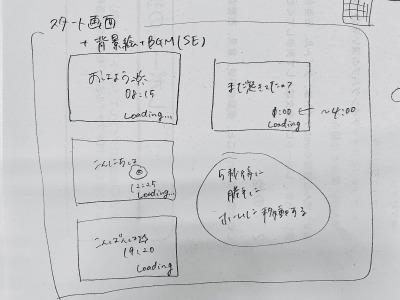 スタート画面
+ 背景絵 + BGM(SE)
おはよう
08:15
Loading...
まだ起きてたの?
0:00 ← ~4:00
Loading
こんにちは
12:25
Loading...
こんばんは☆
19:20
Loading
5秒後に
勝手に
ホームに移動する